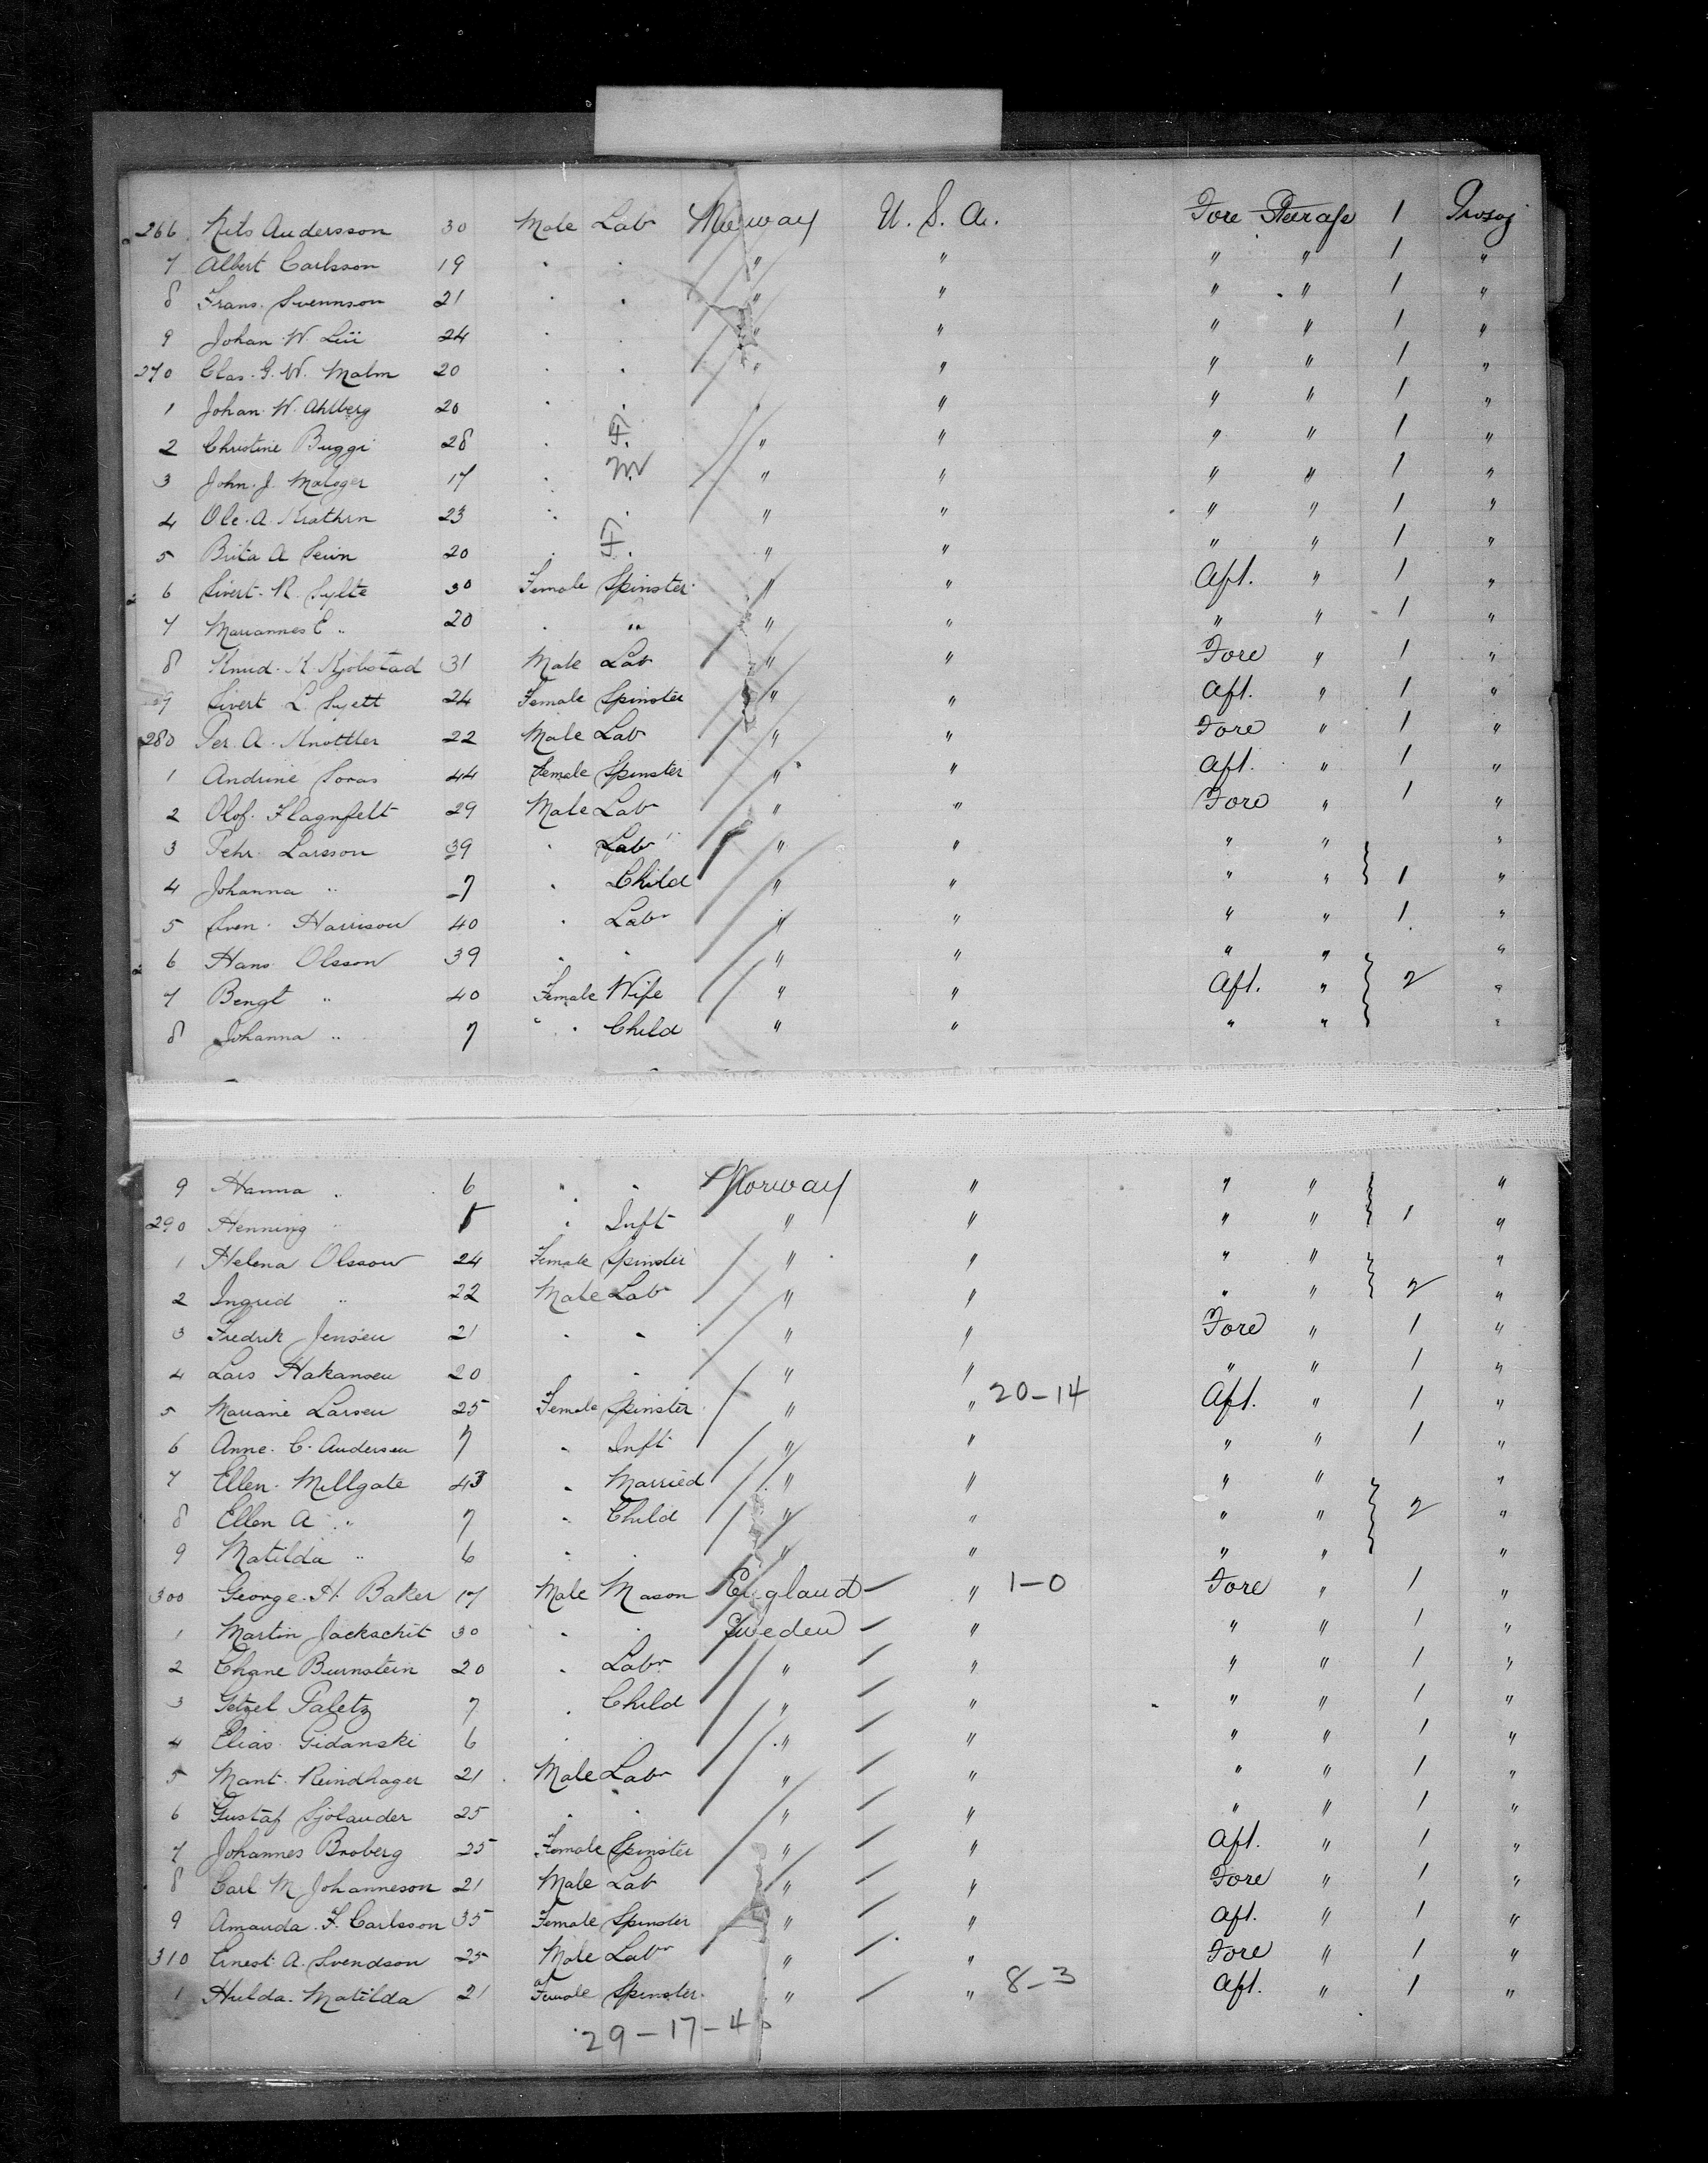 266 Nils Andersson 30 Male Lab Norway U. S. A. Fore Steerage 1
7 Albert Carlsson 19 " " " " " " 1 "
8 Frans. Svennson 21 " " " " " " 1 "
9 Johan W. 24 " " " " " " 1 "
270 Clas. G. W. Malm 20 " " " " " " 1 "
1 Johan. W. Ahlberg 20 " " " " " " 1 "
2 Christine Buggi 28 " F. " " " " 1 "
3 John. J. 17 " M " " " " 1 "
4 Ole. A. 23 " " " " " " 1 "
5 A 20 " F. " " " " 1 "
6 Sivert. R. Sylte 30 Female Spinster " " Aft. " 1 "
7 Mariannes E " 20 " " " " " " 1 "
8 Knud. K. Kjobstad 31 Male Lab " " Fore " 1 "
9 Sivert L. 24 Female Spinster " " Aft. " 1 "
280 Per. A. Knottler 22 Male Lab " " Fore " 1 "
1 Andrine Soras 44 Female Spinster " " Aft. " 1 "
2 Olof. Flagnfelt 29 Male Lab " " Fore " 1 "
3 Pehr. Larsson 39 " Labr " " " " "
4 Johanna " 7 " Child " " " " 1 "
5 Sven. Harrison 40 " Labr " " " " 1 "
6 Hans Olsson 39 " " " " " " "
7 Bengt " 40 Female Wife " " Aft. " 2 "
8 Johanna " 7 " " Child " " " " "
9 Hanna " 6 " " Norway " " " "
290 Henning " " Inft " " " " 1 "
1 Helena Olsson 24 Female Spinster " " " " "
2 Ingrid " 22 Male Labr " " " " 2 "
3 Fredrik Jensen 21 " " " " Fore " 1 "
4 Lars Hakansen 20 " " " " " 1 "
5 Mariane Larsen 25 Female Spinster " " 20-14 Aft. " 1 "
6 Anne. C. Andersen 7 " Inft " " " " 1 "
7 Ellen. Millgate 43 " Married " " " " "
8 Ellen A " 7 " Child " " " " 2 "
9 Matilda " 6 " " " " " "
300 George. H. Baker 17 Male Mason England " 1-0 Fore " 1 "
1 Martin Jackschit 30 " " Sweden " " " 1 "
2 Chane Burnstein 20 " Labr " " " " 1 "
3 Getzel Paletz 7 " Child " " " " 1 "
4 Elias. Gidanski 6 " " " " " " 1 "
5 Mant. Reindhager 21 Male Labr " " " " 1 "
6 Gustaf Sjolander 25 " " " " " " 1 "
7 Johannes Broberg 25 Female Spinster " " Aft. " 1 "
8 Carl M Johanneson 21 Male Lab " " Fore " 1 "
9 Amanda. F. Carlsson 35 Female Spinster " " Aft. " 1 "
310 Ernest A. Svendson 25 Male Labr " " Fore " 1 "
1 Hulda. Matilda 21 Female Spinster " " 8-3 Aft. " 1 "
29-17-4